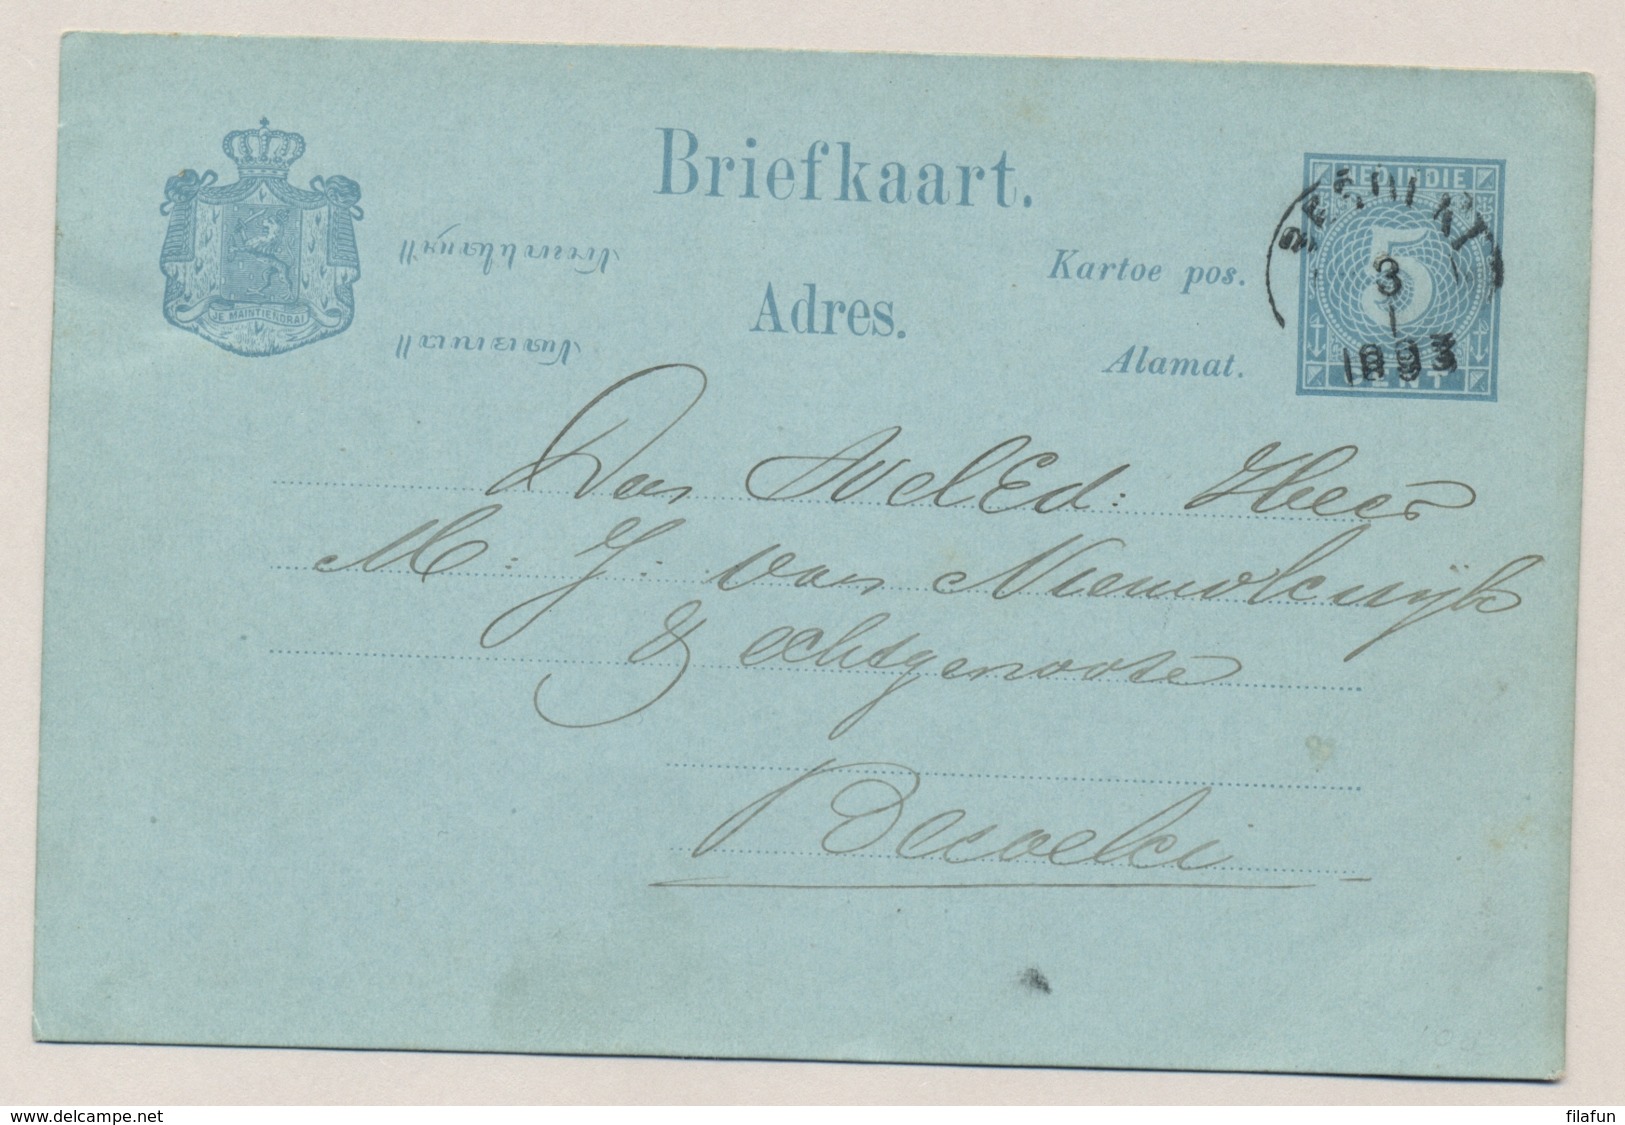 Briefkaart.
NED.INDIE
5
CENT
BESOEKI
3
1
1893
Kartoe pos.
Adres.
Alamat.
JE MAINTIENDRAI
Den WelEd: Heer
M: J: van
& Echtgenoote
Besoeki
www.delcampe.net
filafun